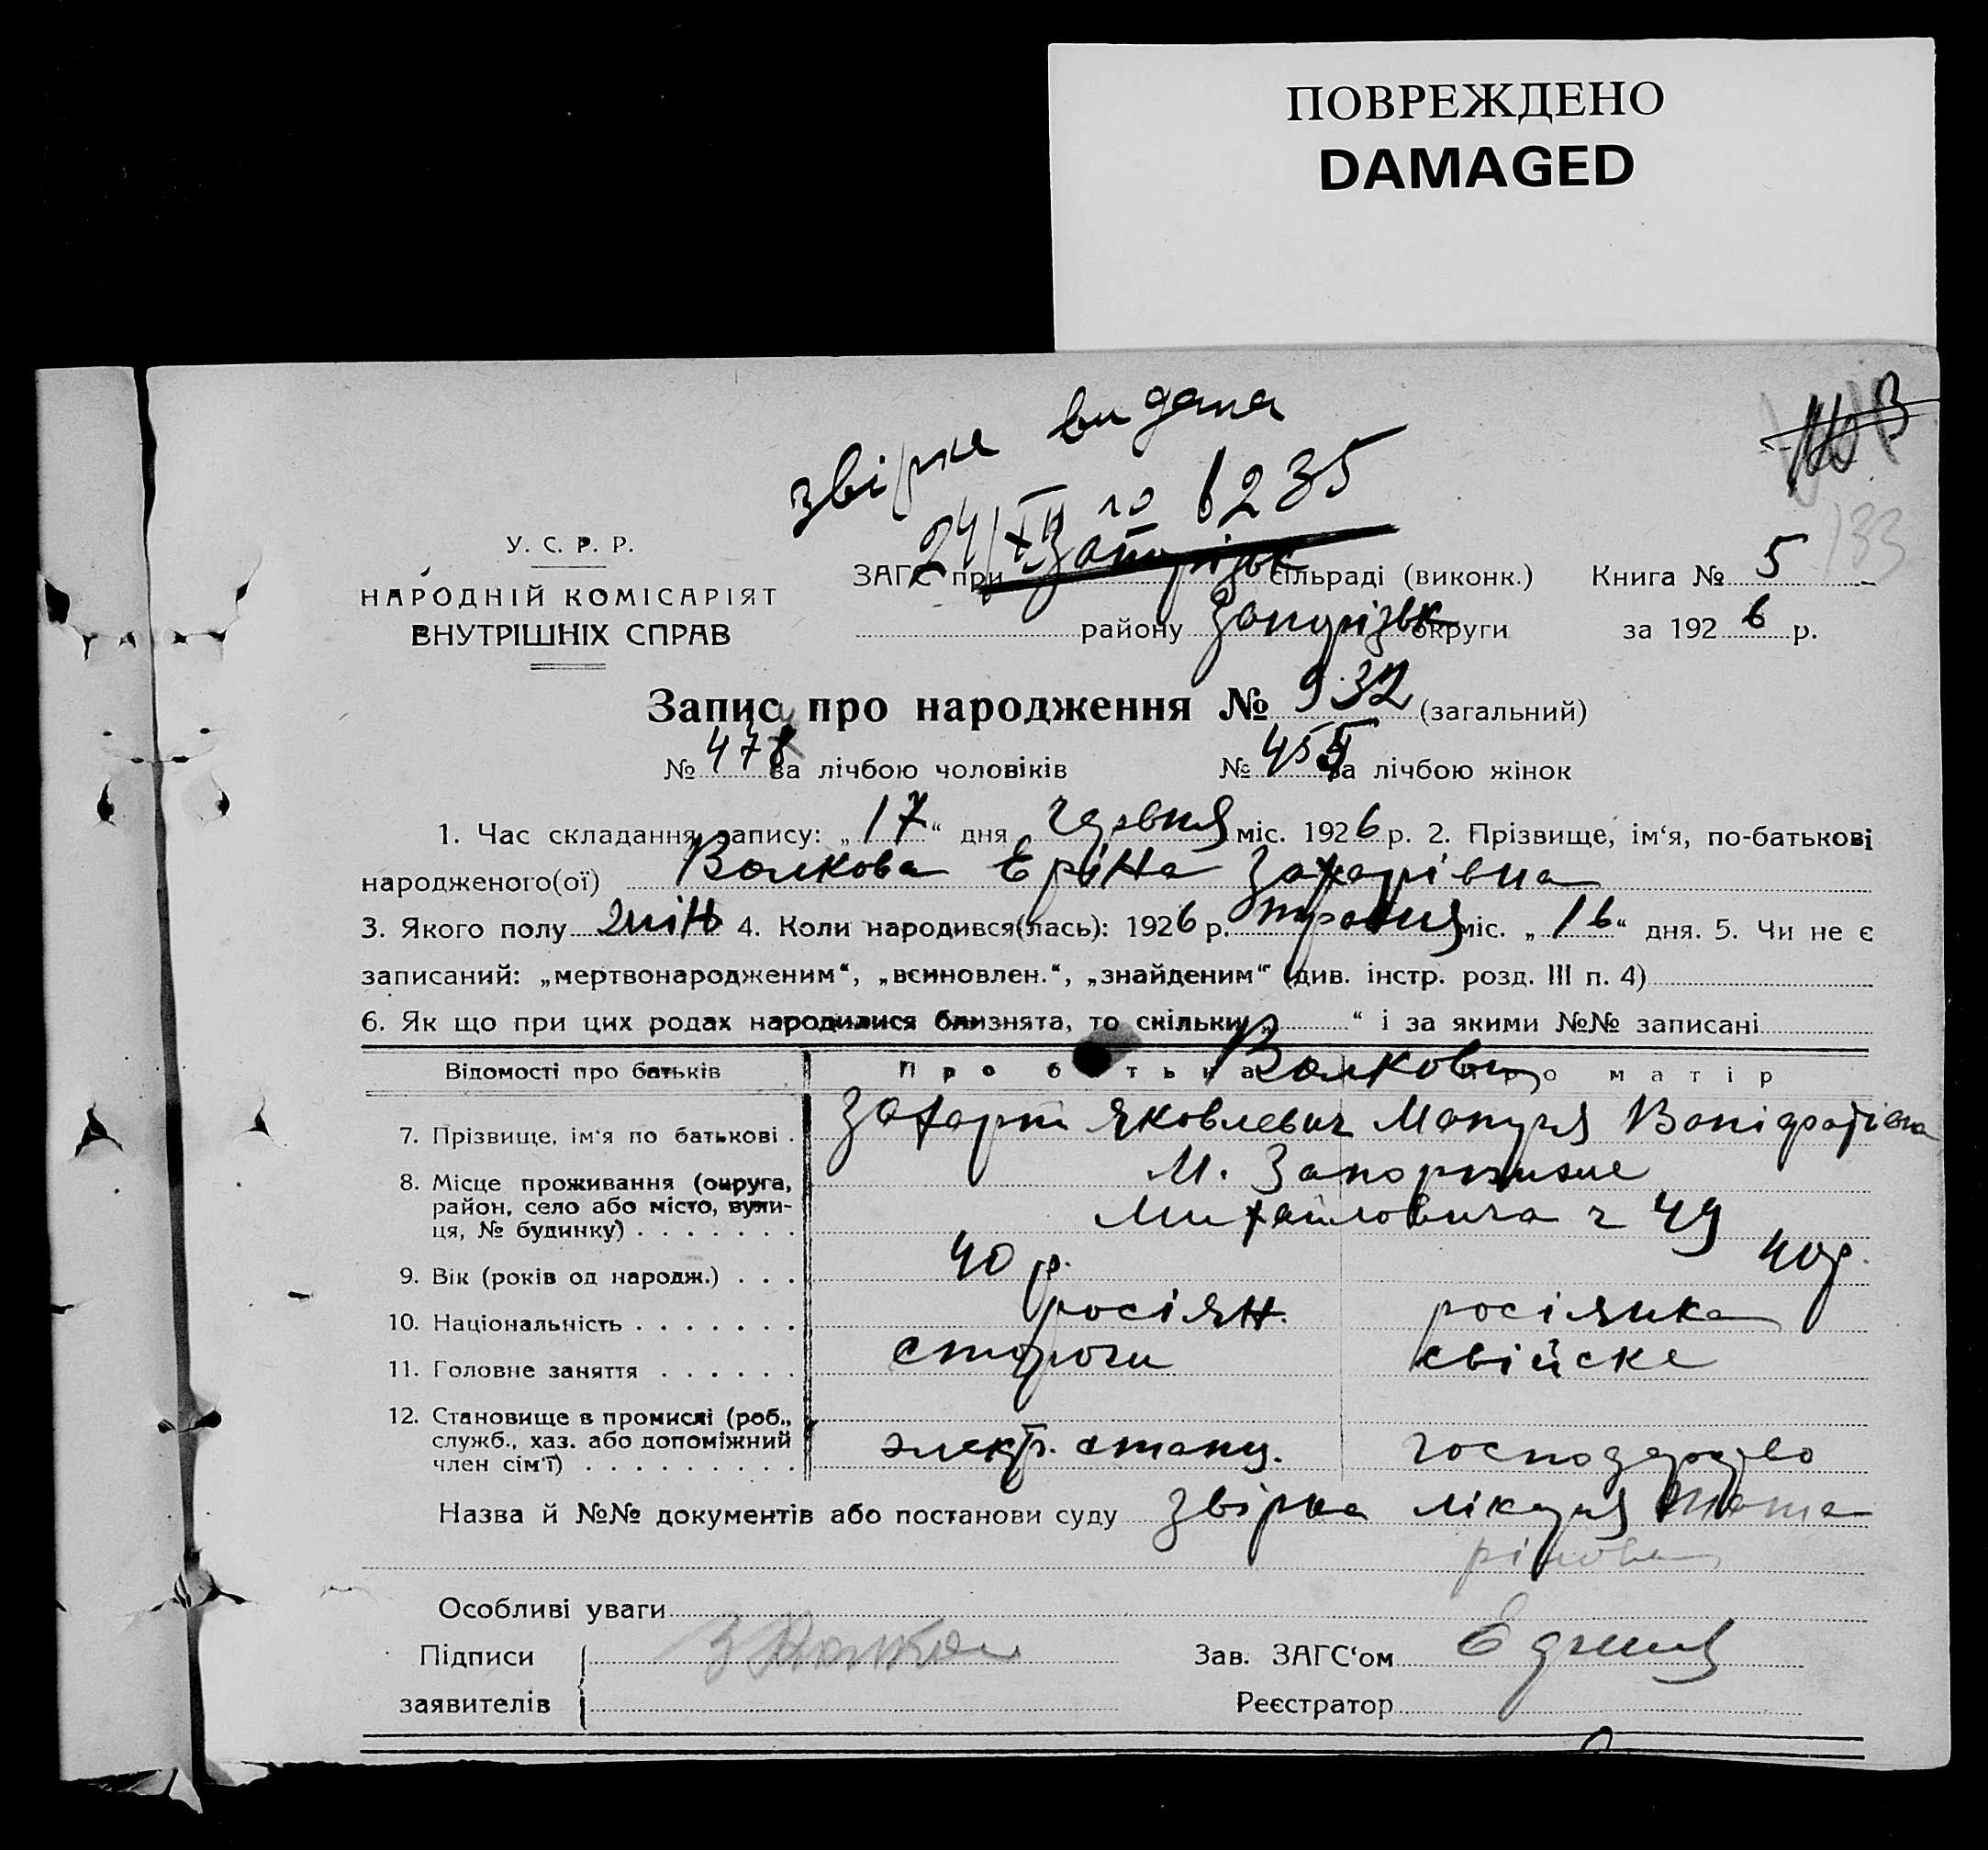 ПОВРЕЖДЕНО
DAMAGED
звірка видана
24/XII го 1235
У. С. Р. Р.
НАРОДНІЙ КОМІСАРІЯТ
ВНУТРІШНІХ СПРАВ
ЗАГС при Запорізьк сільраді (виконк.) Книга № 5 133
району Запорізьк округи за 1926 р.
Запис про народження № 932 (загальний)
№ 478 за лічбою чоловіків № 454 за лічбою жінок
1. Час складання запису: „17“ дня червня міс. 1926 р. 2. Прізвище, ім‘я, по-батькові
народженого(ої) Волкова Еріна Захарівна
3. Якого полу жін 4. Коли народився(лась): 1926 р. травня міс. „16“ дня. 5. Чи не є
записаний: „мертвонародженим“, „всиновлен.“, „знайденим“ (див. інстр. розд. III п. 4)
6. Як що при цих родах народилися близнята, то скільки „ “ і за якими №№ записані
Відомості про батьків Про батька Про матір
Волкови
7. Прізвище, ім‘я по батькові . Захарій Яковлевич
8. Місце проживання (округа, район, село або місто, вули-ця, № будинку) . . . . . . . М. Запоріжже
Михайловича 2 49
9. Вік (років од народж.) . . . 40 р. 40 р.
10. Національність . . . . . . . росіян. росіянка
11. Головне заняття . . . . . . сторож свійске
12. Становище в промислі (роб., служб., хаз. або допоміжний член сім‘ї) . . . . . . . . . електр. станц. господарство
Назва й №№ документів або постанови суду звірка лікаря
Особливі уваги
Підписи Зав. ЗАГС‘ом
заявителів Реєстратор